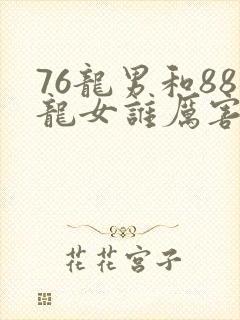 76龍男和88
龍女誰厲害
花花宮子